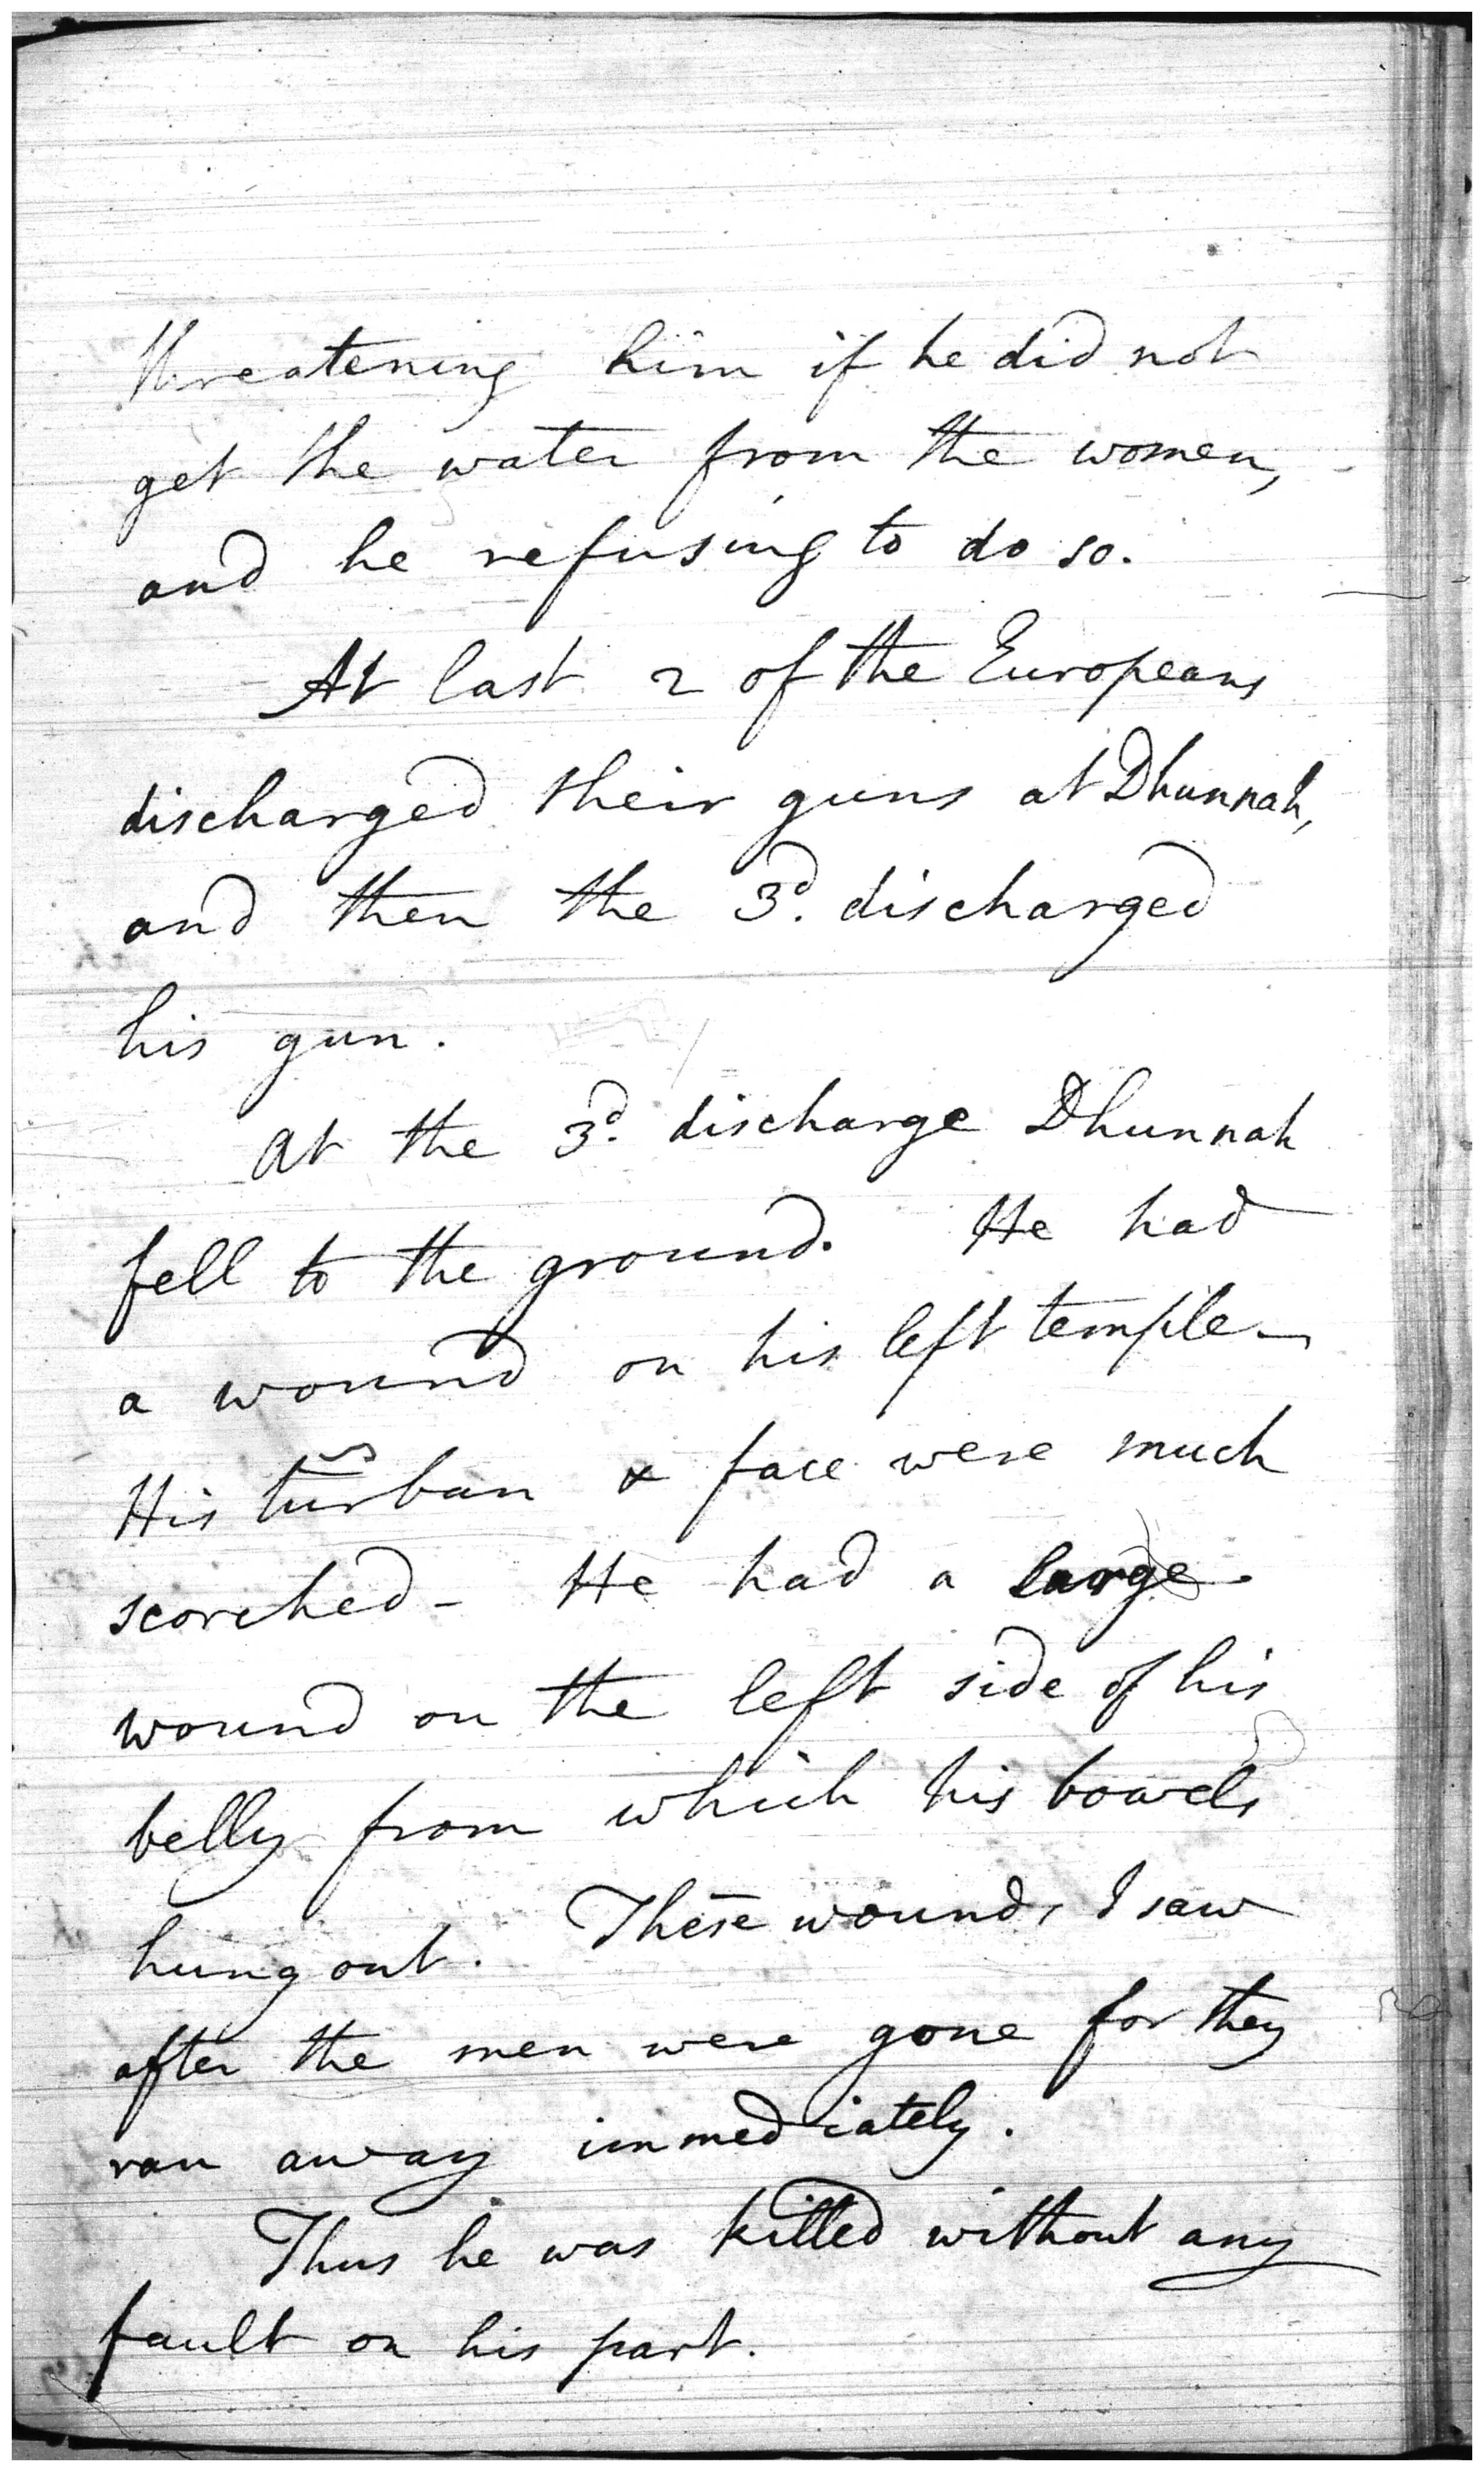 threatening him if he did not
get the water from the women,
and he refusing to do so.
At last 2 of the Europeans
discharged their guns at Dhunnah,
and then the 3d. discharged
his gun.
At the 3d. discharge Dhunnah
fell to the ground. He had
a wound on his left temple -
His turban & face were much
scorched - He had a large
wound on the left side of his
belly from which his bowels
hung out. These wounds I saw
after the men were gone for they
ran away immediately.
Thus he was killed without any
fault on his part.